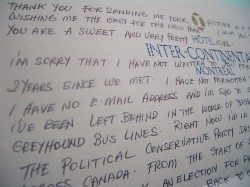 THANK YOU FOR SENDING ME YOUR
WISHING ME THE ONLY FOR THE NEW
YOU ARE A SWEET AND VERY PRETTY GIRL
HOTEL
INTER-CONTINENTAL
MONTREAL
I'M SORRY THAT I HAVE NOT WRITTEN TO
2 YEARS SINCE WE MET. I HAVE NOT FORGOTTEN
I HAVE NO E-MAIL ADDRESS AND I'M SAD TO
I'VE BEEN LEFT BEHIND IN THE WORLD OF
GREYHOUND BUS LINES. RIGHT NOW I'M IN
THE POLITICAL CONSERVATIVE PARTY
ACROSS CANADA. FROM THE START OF
AN ELECTION FOR
BACK TO